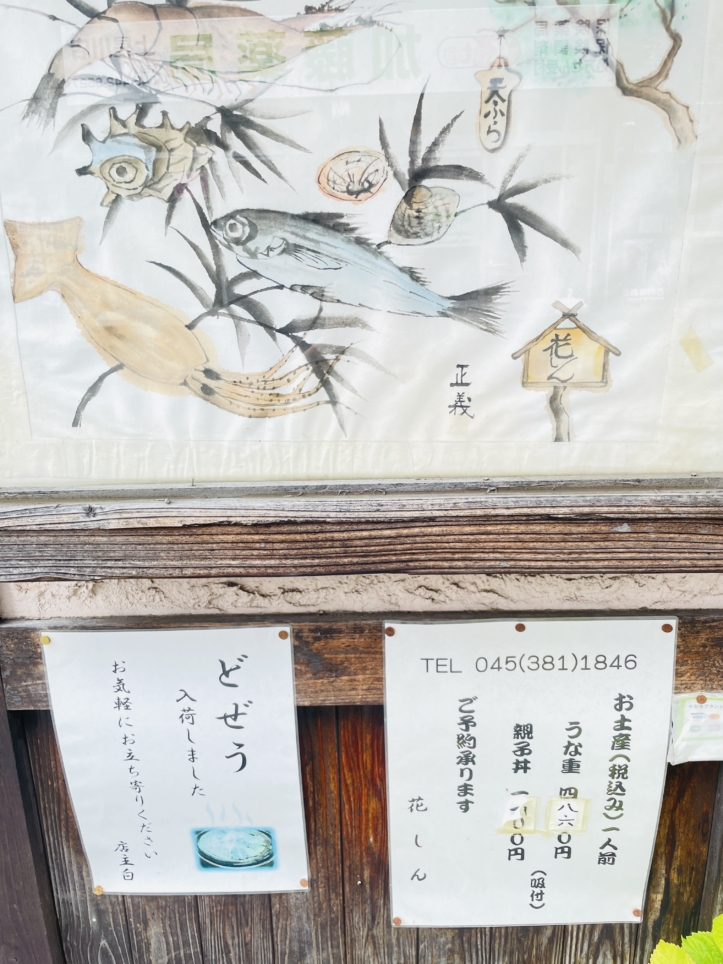 加藤薬局
天ぷら
花しん
正義
どぜう
入荷しました
お気軽にお立ち寄りください
店主白
TEL 045(381)1846
お土産(税込み)一人前
うな重 四八六〇円
親子丼
(吸付)
ご予約承ります
花しん